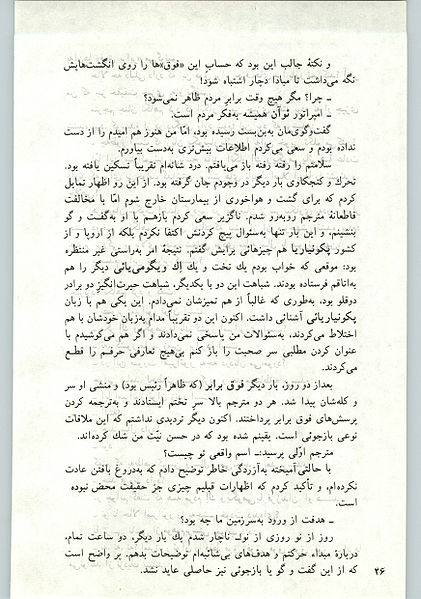 و نکتهٔ جالب این بود که حساب این «فوق»ها را روی انگشت‌هایش
نگه می‌داشت تا مبادا دچار اشتباه شود!
ـ چرا؟ مگر هیچ وقت برابر مردم ظاهر نمی‌شود؟
ـ امپراتور توآن همیشه به‌فکر مردم است.
گفت‌وگوی‌مان به‌بن‌بست رسیده بود، امّا من هنوز هم امیدم را از دست
نداده بودم و سعی می‌کردم اطلاعات بیش‌تری به‌دست بیاورم.
سلامتم را رفته رفته باز می‌یافتم. درد شانه‌ام تقریباً تسکین یافته بود.
تحرك و کنجکاوی بار دیگر در وجودم جان گرفته بود. از این رو اظهار تمایل
کردم که برای گشت و هواخوری از بیمارستان خارج شوم امّا با مخالفت
قاطعانهٔ مترجم روبه‌رو شدم. ناگزیر سعی کردم بازهم با او به‌گفت و گو
بنشینم، و این بار تنها به‌سئوال پیچ کردنش اکتفا نکردم بلکه از اروپا و از
کشور پکونیاریا هم چیزهائی برایش گفتم. نتیجهٔ امر به‌راستی غیر منتظره
بود: موقعی که خواب بودم یك تخت و یك اِك ویگومی‌یائی دیگر را هم
به‌اتاقم فرستاده بودند. شباهت این دو با یکدیگر، شباهت حیرت‌انگیز دو برادر
دوقلو بود، به‌طوری که غالباً از هم تمیزشان نمی‌دادم. این یکی هم با زبان
پکونیاریائی آشنائی داشت. اکنون این دو تقریباً مدام به‌زبان خودشان با هم
اختلاط می‌کردند، به‌سئوالات من پاسخی نمی‌دادند و اگر هم می‌کوشیدم با
عنوان کردن مطلبی سر صحبت را باز کنم بی‌هیچ تعارفی حرفم را قطع
می‌کردند.
بعداز دو روز، بار دیگر فوق برابر (که ظاهراً رئیس بود) و منشی او سر
و کله‌شان پیدا شد. هر دو مترجم بالا سر تختم ایستادند و به‌ترجمه کردن
پرسش‌های فوق برابر پرداختند. اکنون دیگر تردیدی نداشتم که این ملاقات
نوعی بازجوئی است. یقینم شده بود که در حسن نیّت من شك کرده‌اند.
مترجم اوّلی پرسید:ـ اسم واقعی تو چیست؟
با حالتی آمیخته به‌آزردگی خاطر توضیح دادم که به‌دروغ بافتن عادت
نکرده‌ام، و تأکید کردم که اظهارات قبلیم چیزی جز حقیقت محض نبوده
است.
ـ هدفت از ورود به‌سرزمین ما چه بود؟
روز از نو روزی از نو.ـ ناچار شدم یك بار دیگر، دو ساعت تمام،
دربارهٔ مبداء حرکتم و هدف‌های بی‌شائبه‌ام توضیحات بدهم. پر واضح است
که از این گفت و گو یا بازجوئی نیز حاصلی عاید نشد.
۲۶